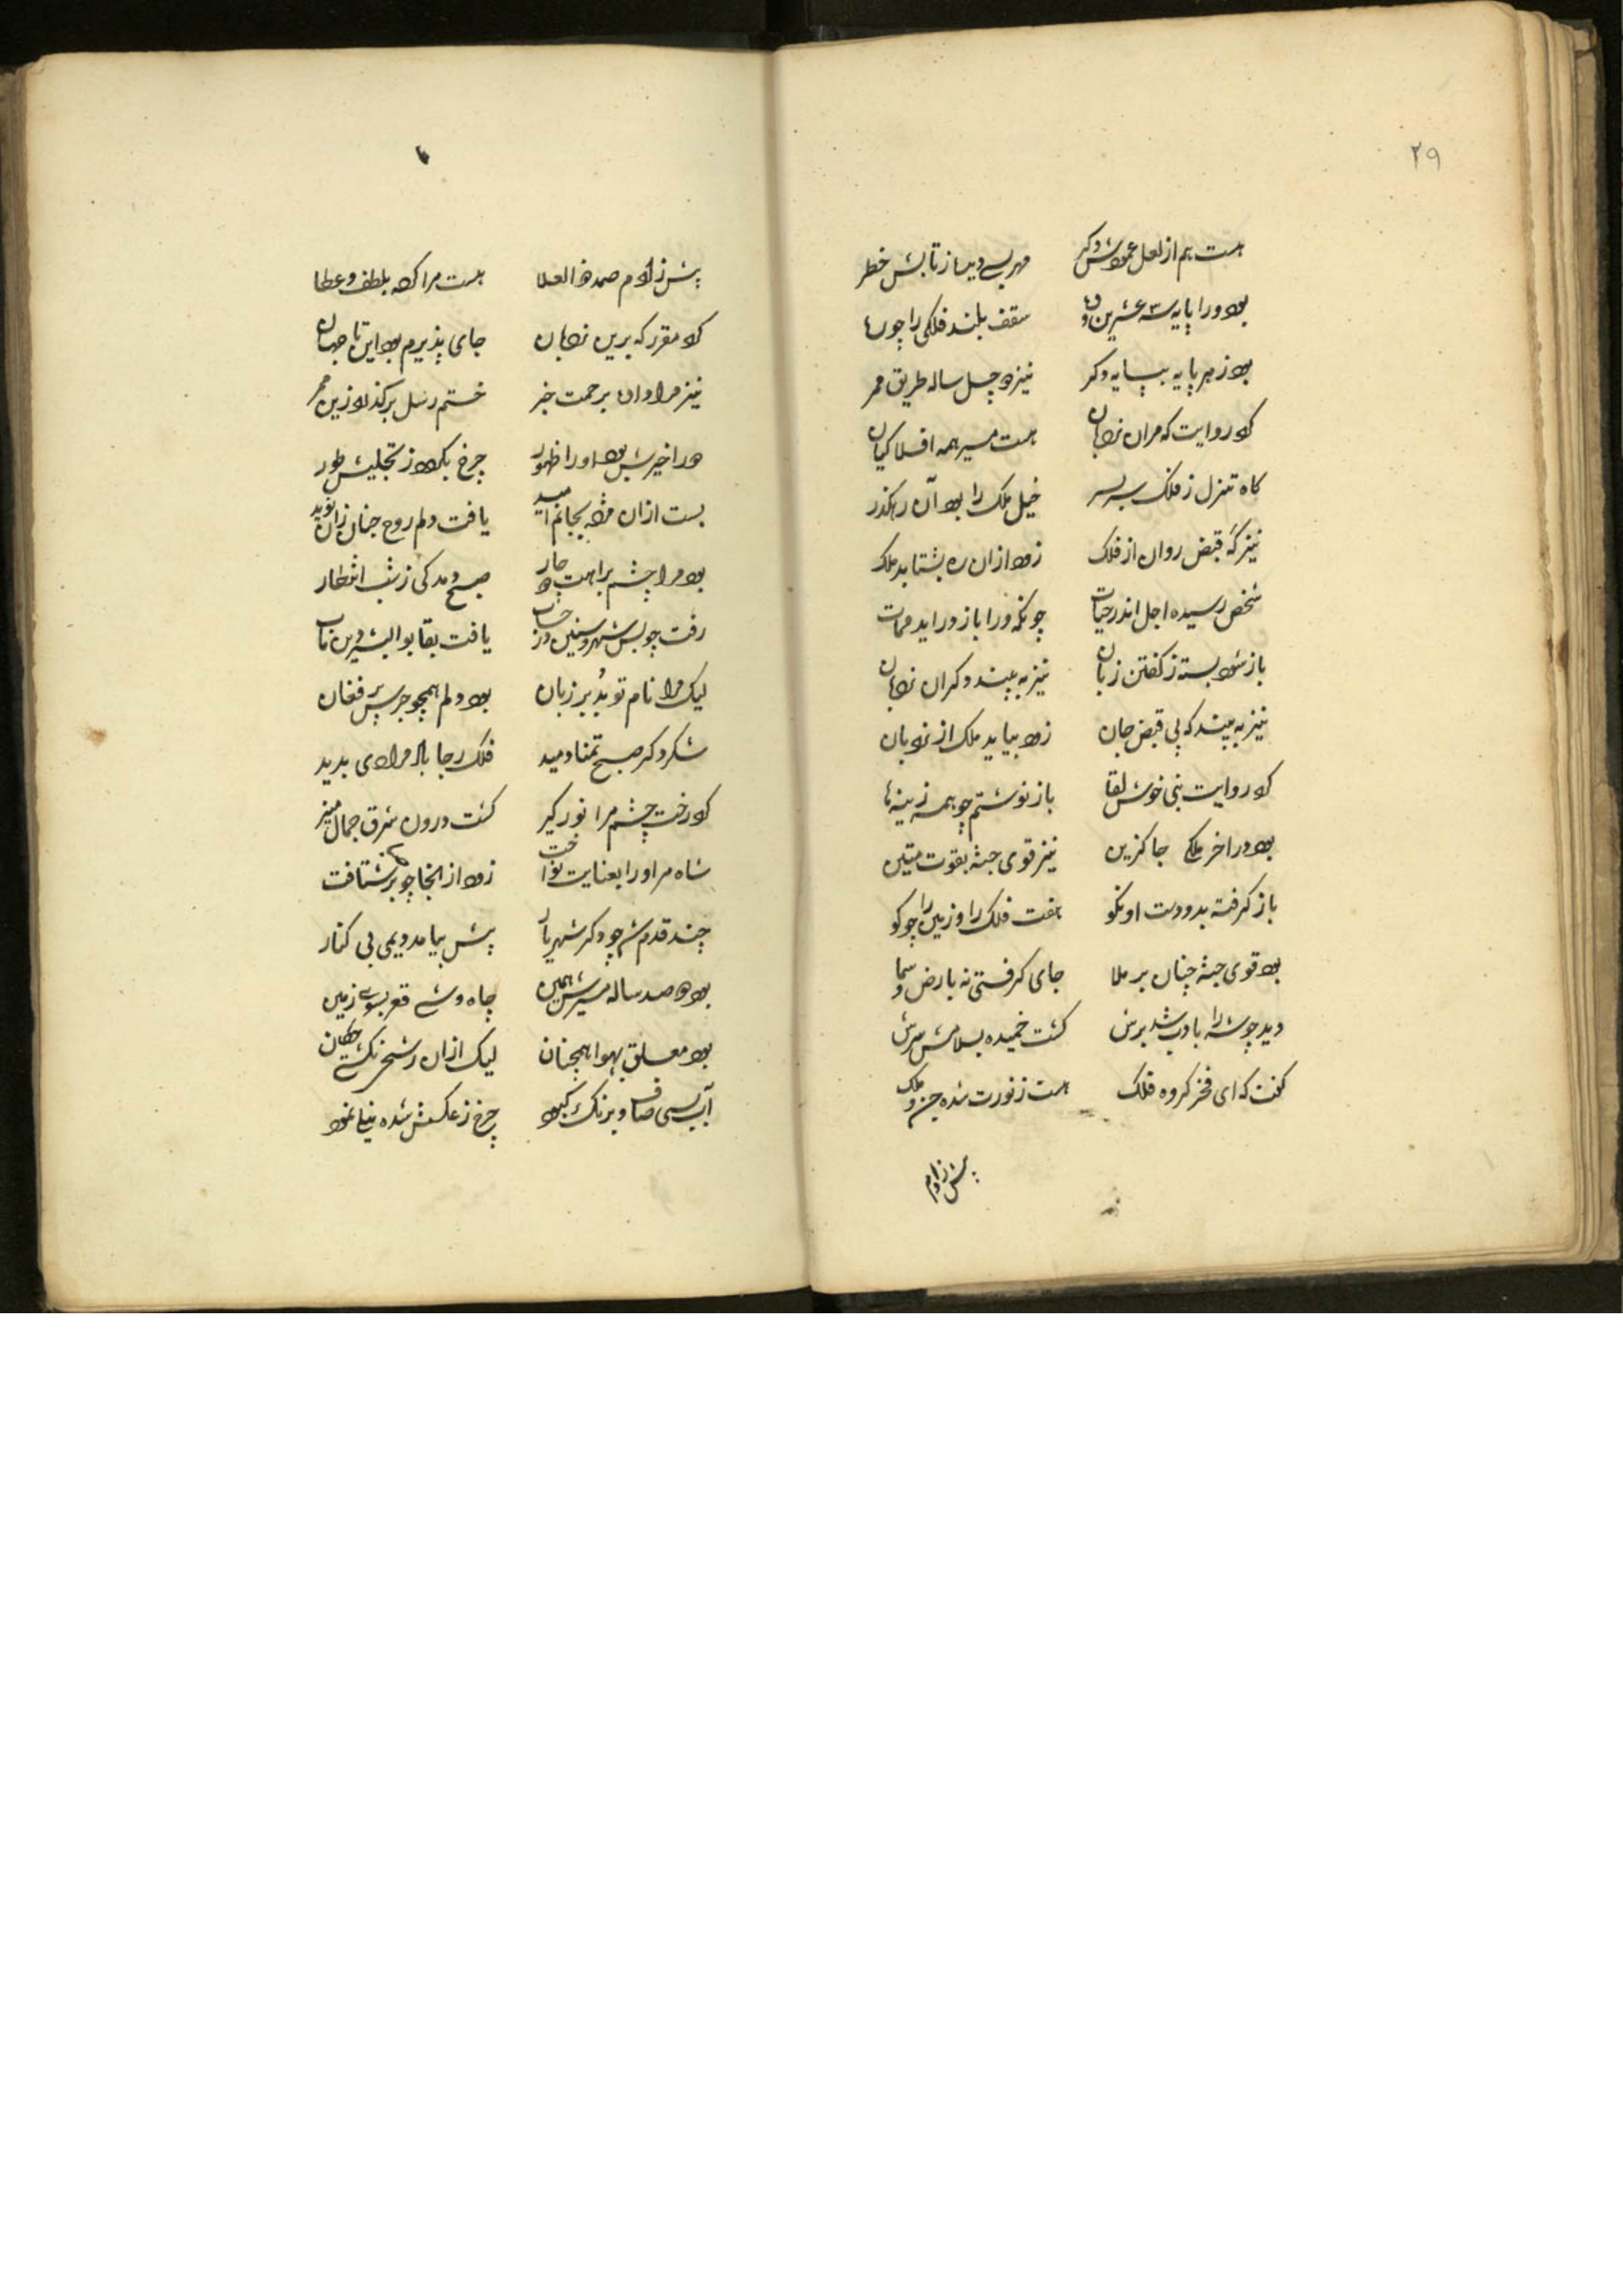 ۲۹
هست هم از لعل عمودش دکر مهر بسی دیده ز تابش خطر
بود ورا پایه سه عشرین و سقف بلند فلکی را چو
بود ز هر پایه بپایه دکر نیز چهل ساله طریق ممر
کرد روایت که مران نردبان هست مسیر همه افلاکیان
کاه تنزل ز فلک سربسر خیل ملک را بود آن رهکذر
نیز که قبض روان از فلک زود ازان ره بشتابد ملک
شخص رسیده اجل اندر حیات چونکه ورا باز در اید ممات
باز شود بسته ز کفتن زبان نیز به بیند دکران نردبان
نیز به بیند که پی قبض جان زود بیاید ملک از نردبان
کرد روایت نبی خوش لقا باز نوشتم چو همه زینها
بود در اخر ملکی جا کزین نیز قوی جثه بقوت متین
باز کرفته بدو دست او نکو هفت فلک را و زمین را چو کو
بود قوی جثه چنان بر ملا جای کرفتی نه بارض و سما
دید چو شه را بادب شد برش کشت خمیده بسلامش سرش
کفت که ای فخر کروه فلک هست ز نورت شده جن و ملک
پیش ز آدم
پیش ز آدم صمد ذو العلا هست مرا کرد بلطف و عطا
کرد مقرر که برین نردبان جای پذیرم بود این تا جهان
نیز مرا داد بر حمت خبر ختم رسل برکذرد زین ممر
در اخیرش بود او را ظهور چرخ بکردد ز تجلیش طور
بست ازان مژده بجانم امید یافت دلم روح جنان زان نوید
بود مرا چشم براهت چار صبح دمد کی ز شب انتظار
رفت چو بس شهر و سنین در حساب یافت بقا بو البشر
لیک مرا نام تو بد بر زبان بود دلم همچو جرس پر فغان
شکر دکر صبح تمنا دمید فلک رجا باد مرادی بدید
کرد رخت چشم مرا نور کیر کشت درون شرق جمال منیر
شاه مر او را بعنایت نواخت زود از انجا چو شتافت
چند قدم شد چو دکر شهریار پیش بیامد یمی بی کنار
بود صد ساله مسیرش همین چاه وشی قعر بسوی زمین
بود معلق بهوا همچنان لیک ازان رشح نکشتی چکان
آب بسی صاف و برنک کبود چرخ ز عکسش شده نیلی نمود